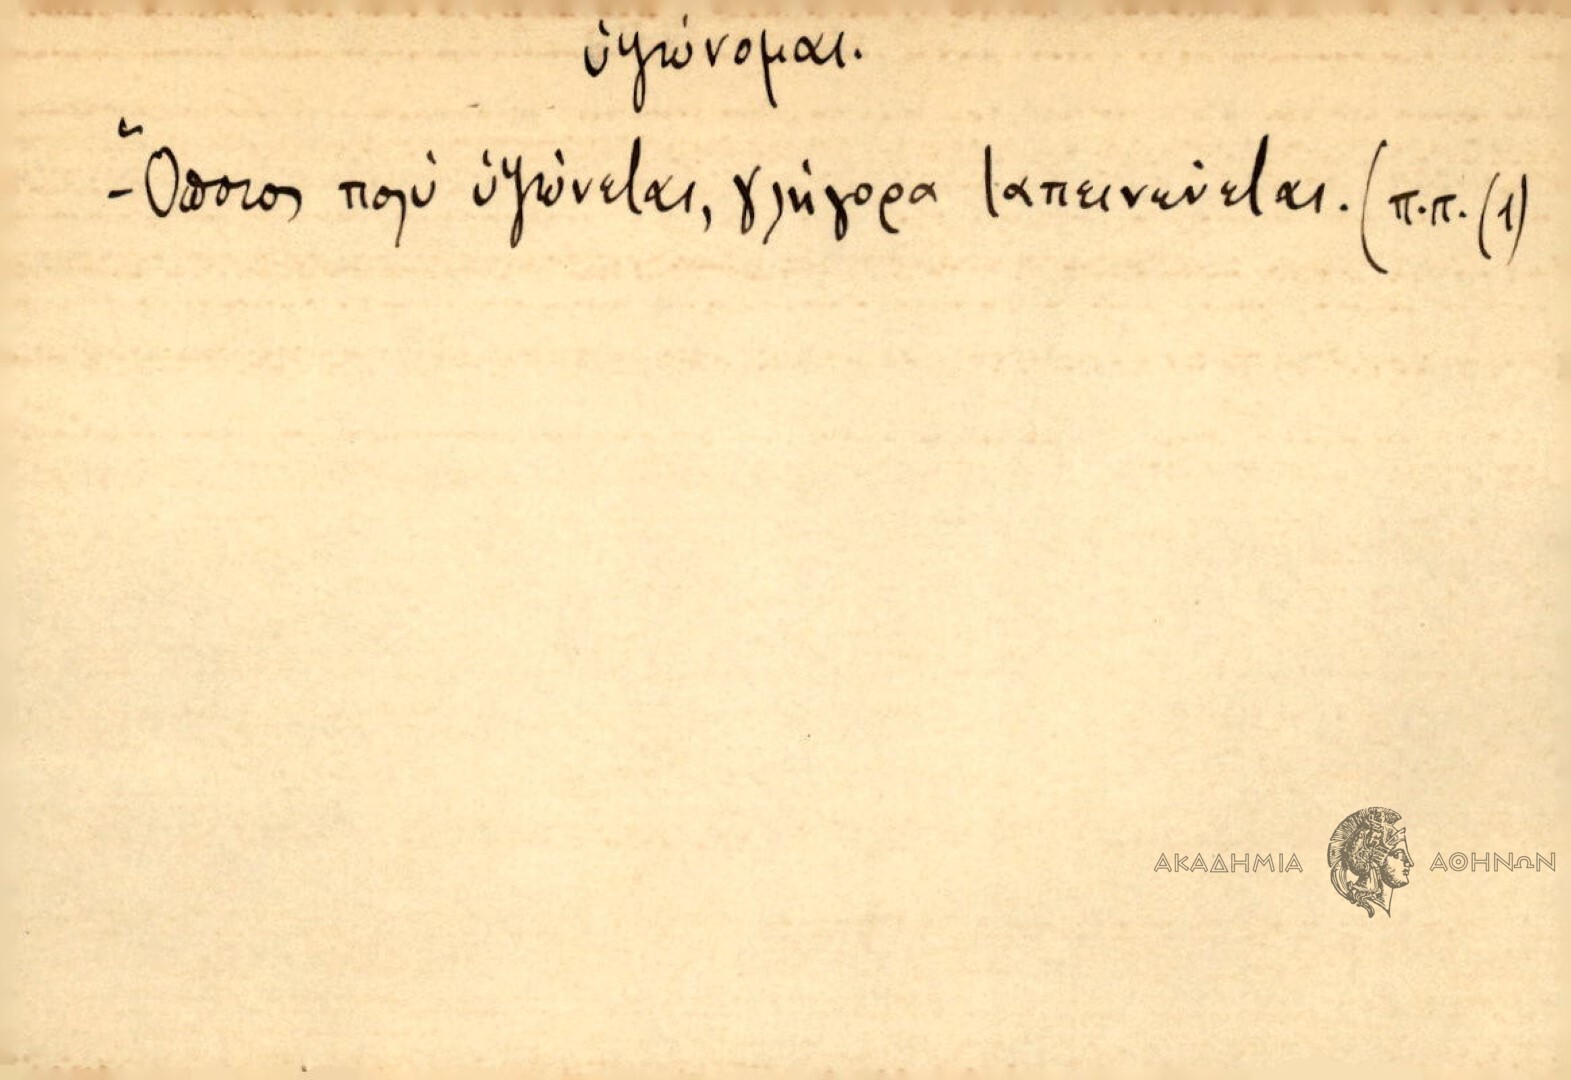 ὑψώνομαι.
- Ὅποιος πολὺ ὑψώνεται, γλήγορα ταπεινώνεται. (π.π. (1)
ΑΚΑΔΗΜΙΑ ΑΘΗΝΩΝ